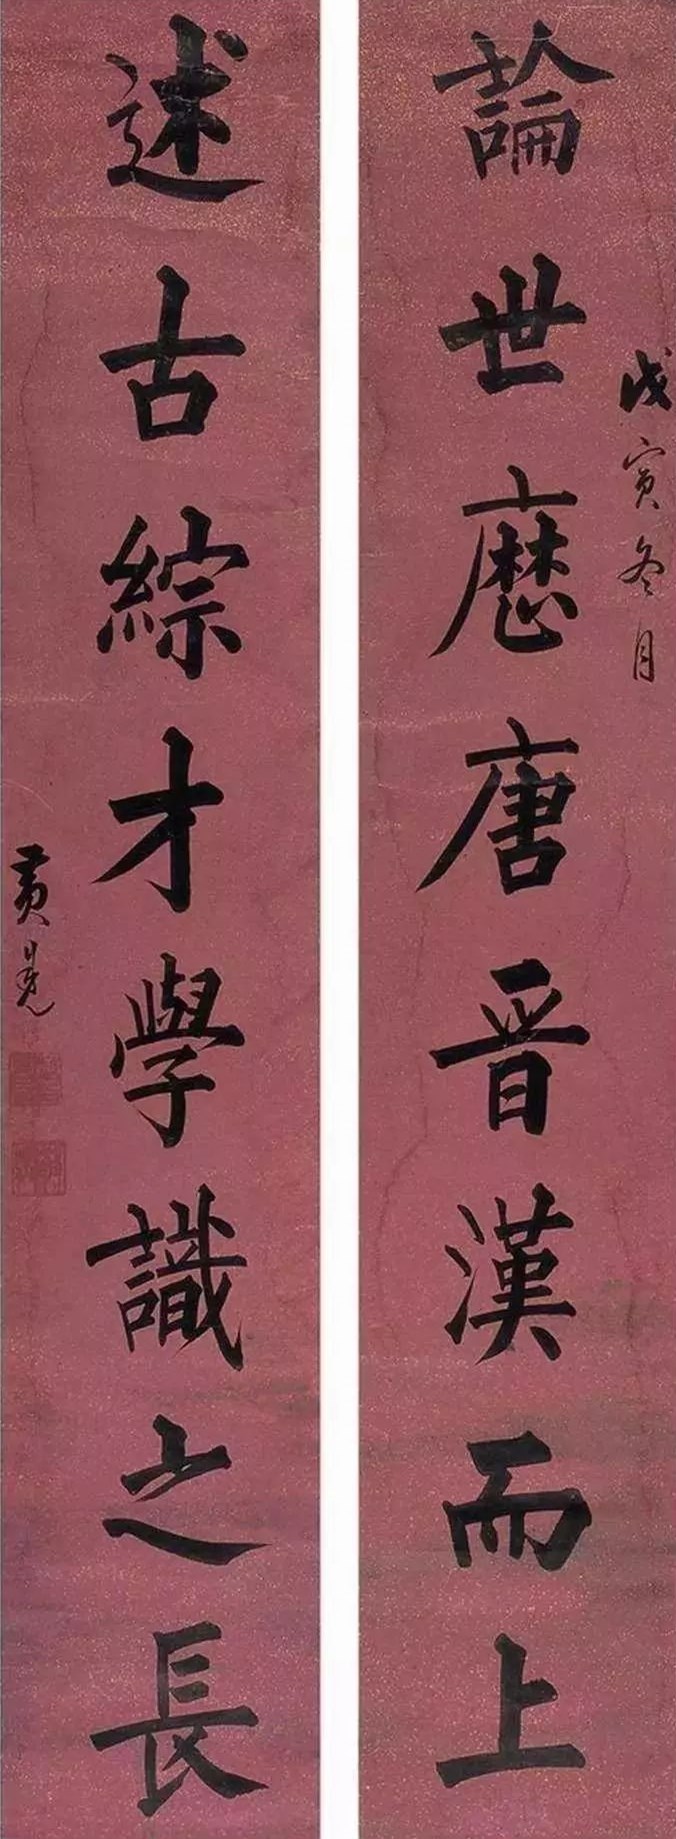 戊寅冬月
論世歷唐晋漢而上
述古綜才學識之長
黃